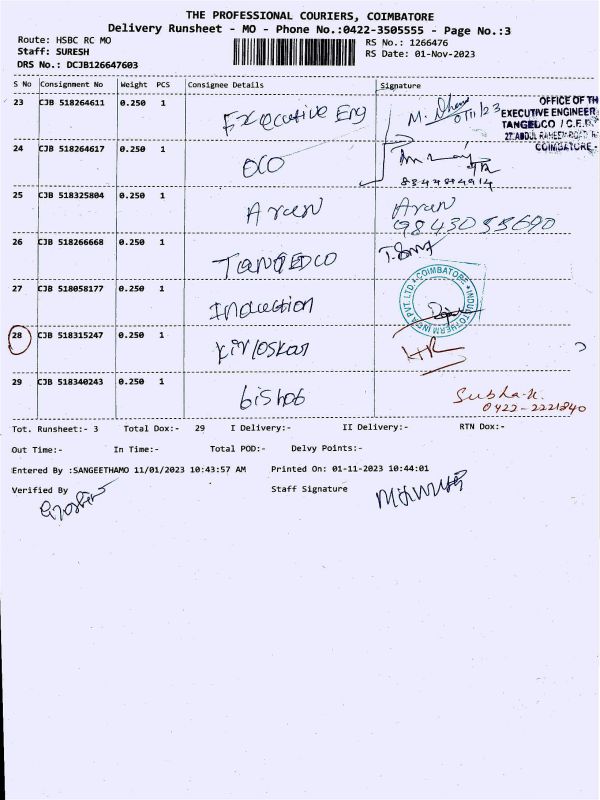 THE PROFESSIONAL COURIERS, COIMBATORE
Delivery Runsheet - MO - Phone No.:0422-3505555 - Page No.:3
Route: HSBC RC MO
RS No.: 1266476
Staff: SURESH
RS Date: 01-Nov-2023
DRS No.: DCJB126647603
S No Consignment No Weight PCS Consignee Details Signature
23 CJB 518264611 0.250 1 Executive Eng
OFFICE OF TH
EXECUTIVE ENGINEER
TANGEDCO / C.E.D.
27, ABDUL RAHEEM ROAD
COIMBATORE -
24 CJB 518264617 0.250 1 OCO
25 CJB 518325804 0.250 1 Arun Arun
9843055690
26 CJB 518266668 0.250 1 TANGEDCO
27 CJB 518058177 0.250 1 Induction
COIMBATORE * INDUCTOTHERM INDIA PVT. LTD *
28 CJB 518315247 0.250 1 Kirloskar
29 CJB 518340243 0.250 1 bishob
Subha.N.
0422-2221840
Tot. Runsheet:- 3 Total Dox:- 29 I Delivery:- II Delivery:- RTN Dox:-
Out Time:- In Time:- Total POD:- Delvy Points:-
Entered By :SANGEETHAMO 11/01/2023 10:43:57 AM Printed On: 01-11-2023 10:44:01
Verified By Staff Signature